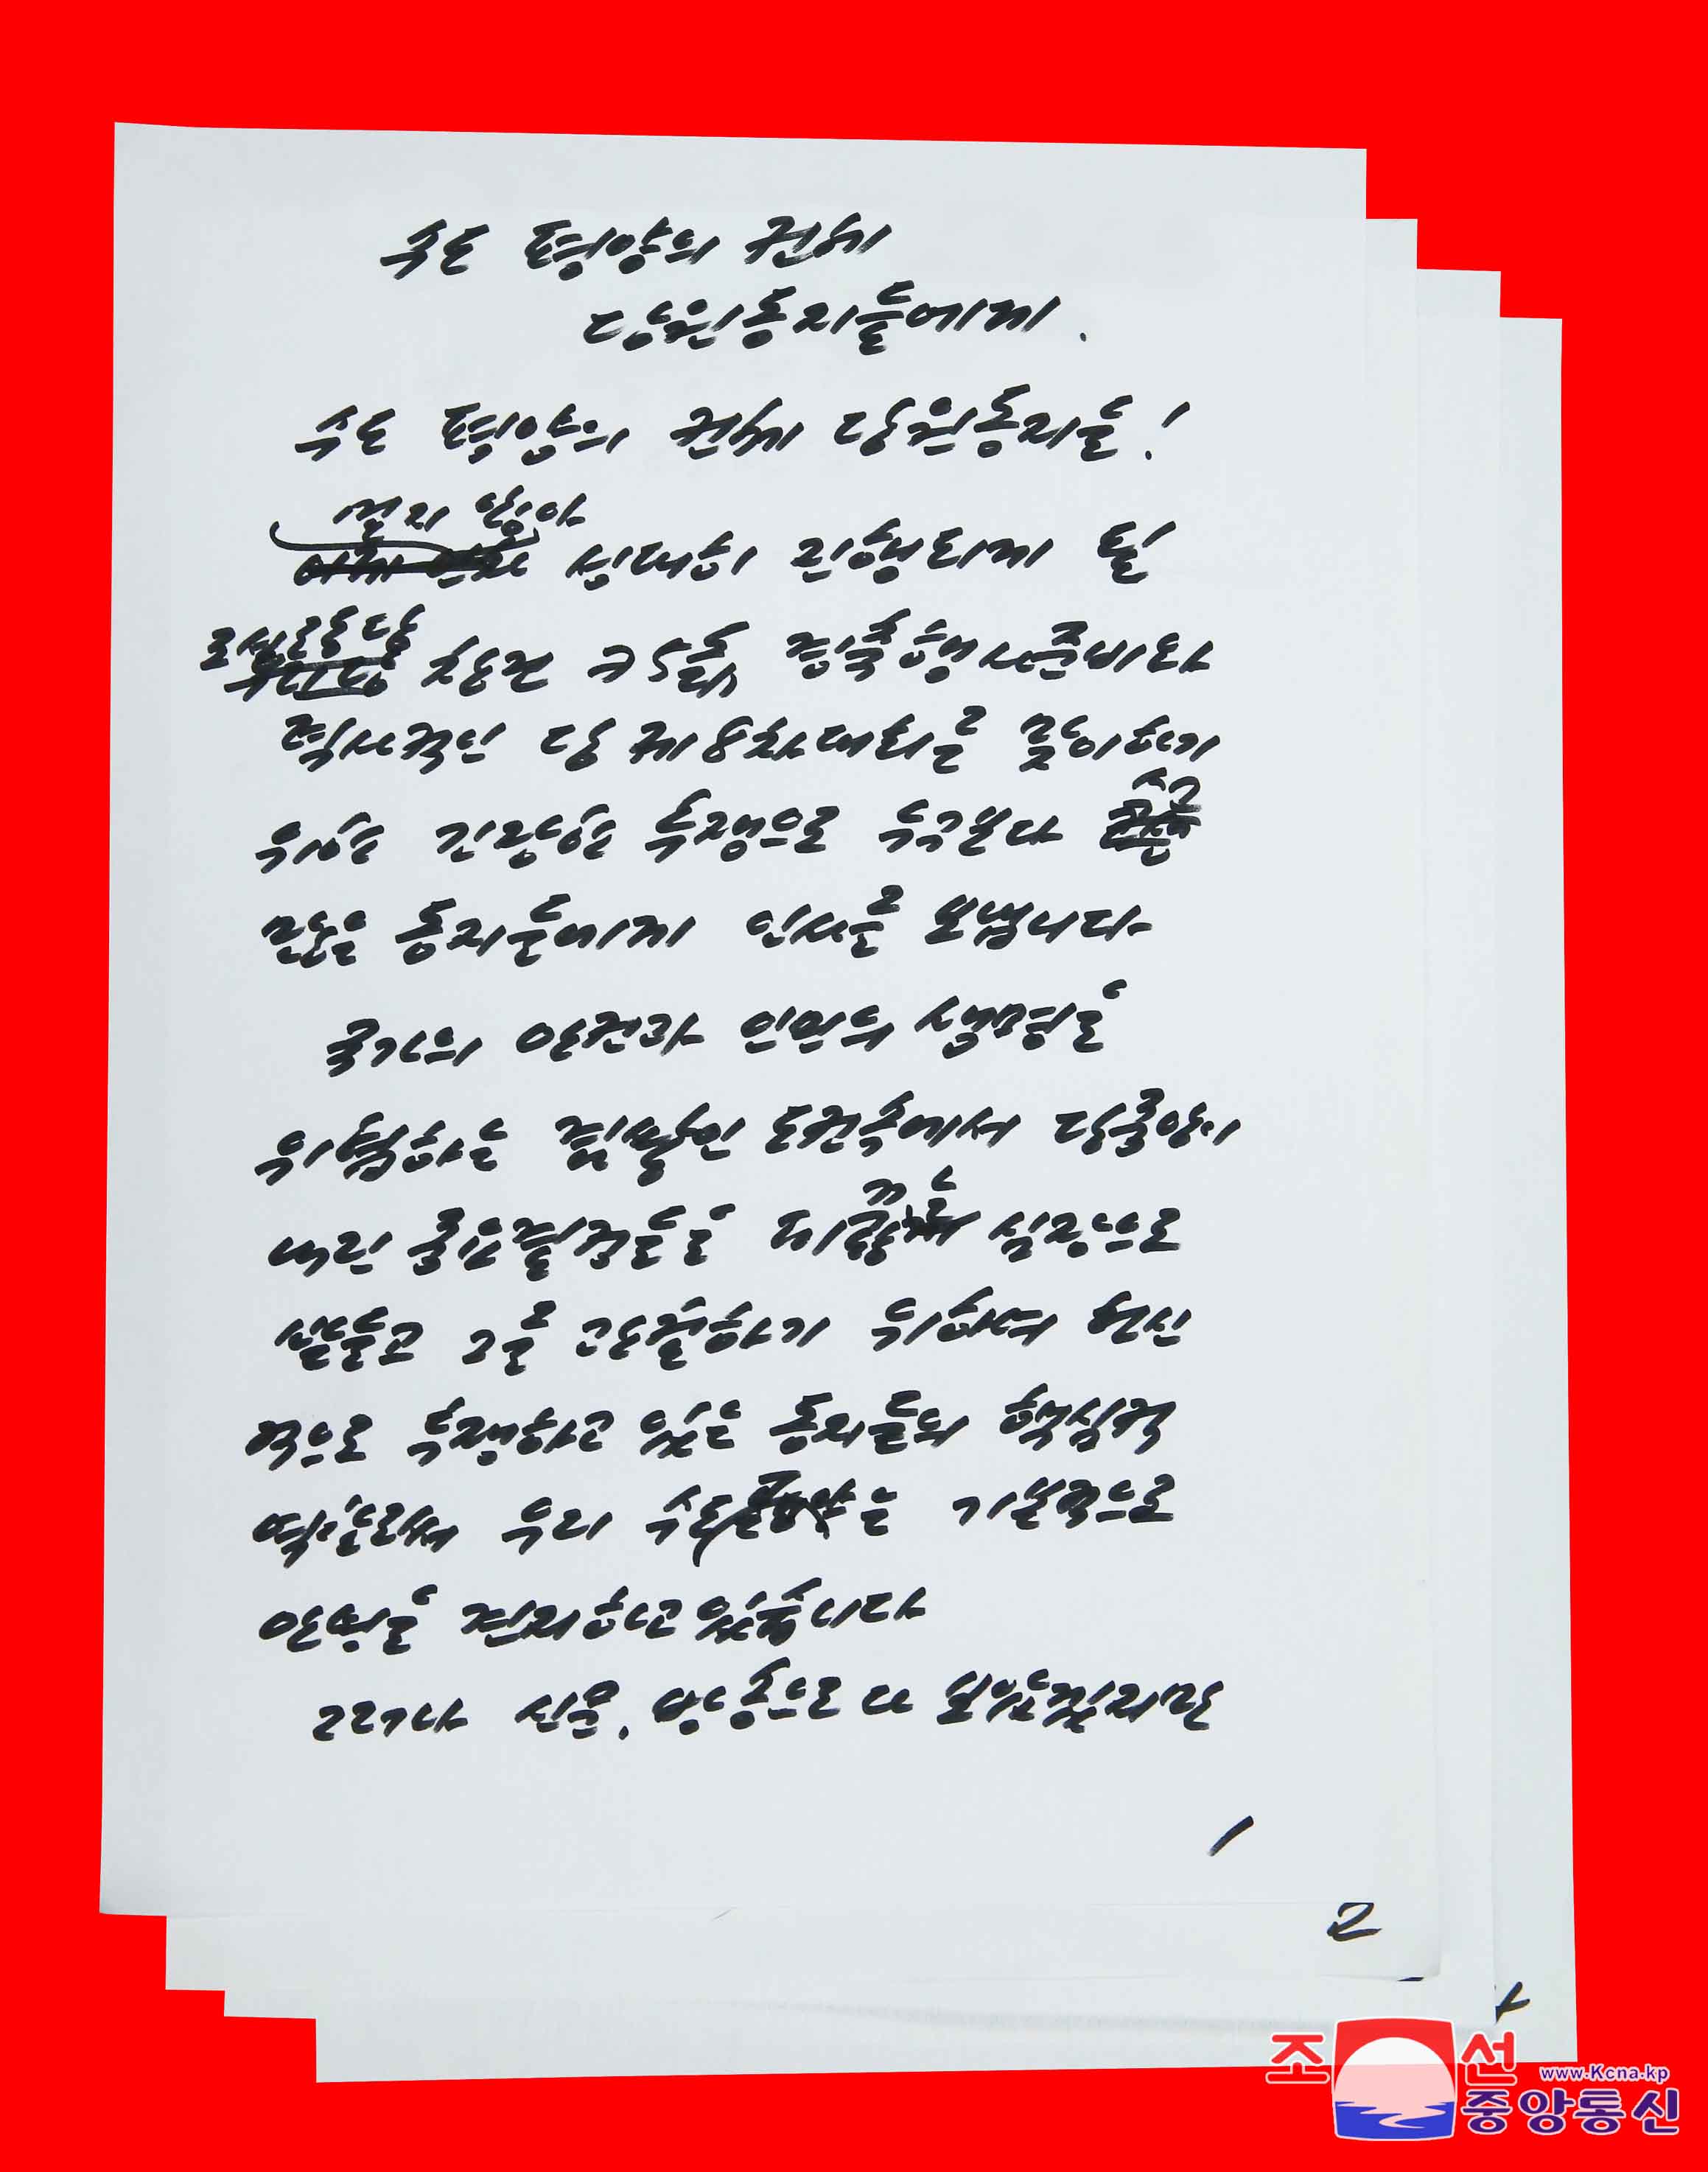 수도 평양의 전체
당원동지들에게.
수도 평양의 전체 당원동지들!
멀지 않아
성대히 진행되게 될
조선로동당
창건 75돐 경축행사준비와
력사적인 당 제8차대회를 맞이하기
위한 긴장한 투쟁으로 누구보다 수고
많은 동지들에게 인사를 보냅니다
국가의 안전과 인민의 생명을
위협하는 겹쌓인 도전속에서 당중앙이
내린 중요결정들을 심장으로
받들고 그를 관철하기 위하여 헌신
적으로 투쟁하고 있는 동지들의 핵심적
역할로써 우리 수도는 기본적으로
안정을 견지하고있습니다
그러나 신문, 방송으로 다 보았겠지만
1
2
4
조선
www.Kcna.kp
중앙통신